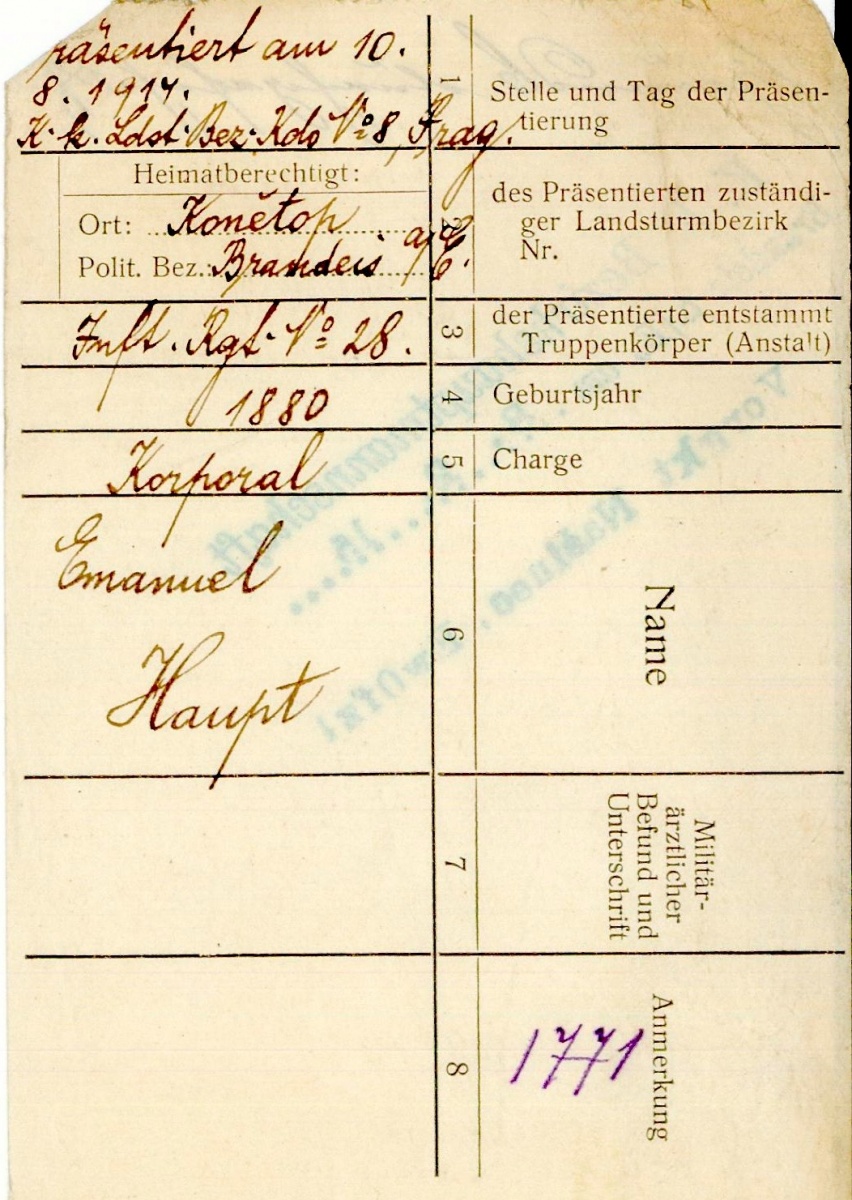 Präsentiert am 10.
8. 1914.
K. k. Ldst. Bez. Kdo No 8, Prag.
1
Stelle und Tag der Präsen-
tierung
Heimatberechtigt:
Ort: Konětop
Polit. Bez.: Brandeis a/E.
2
des Präsentierten zuständi-
ger Landsturmbezirk
Nr.
Inft. Rgt. No 28.
3
der Präsentierte entstammt
Truppenkörper (Anstalt)
1880
4
Geburtsjahr
Korporal
5
Charge
Emanuel
Haupt
6
Name
7
Militär-
ärztlicher
Befund und
Unterschrift
8
Anmerkung
1771